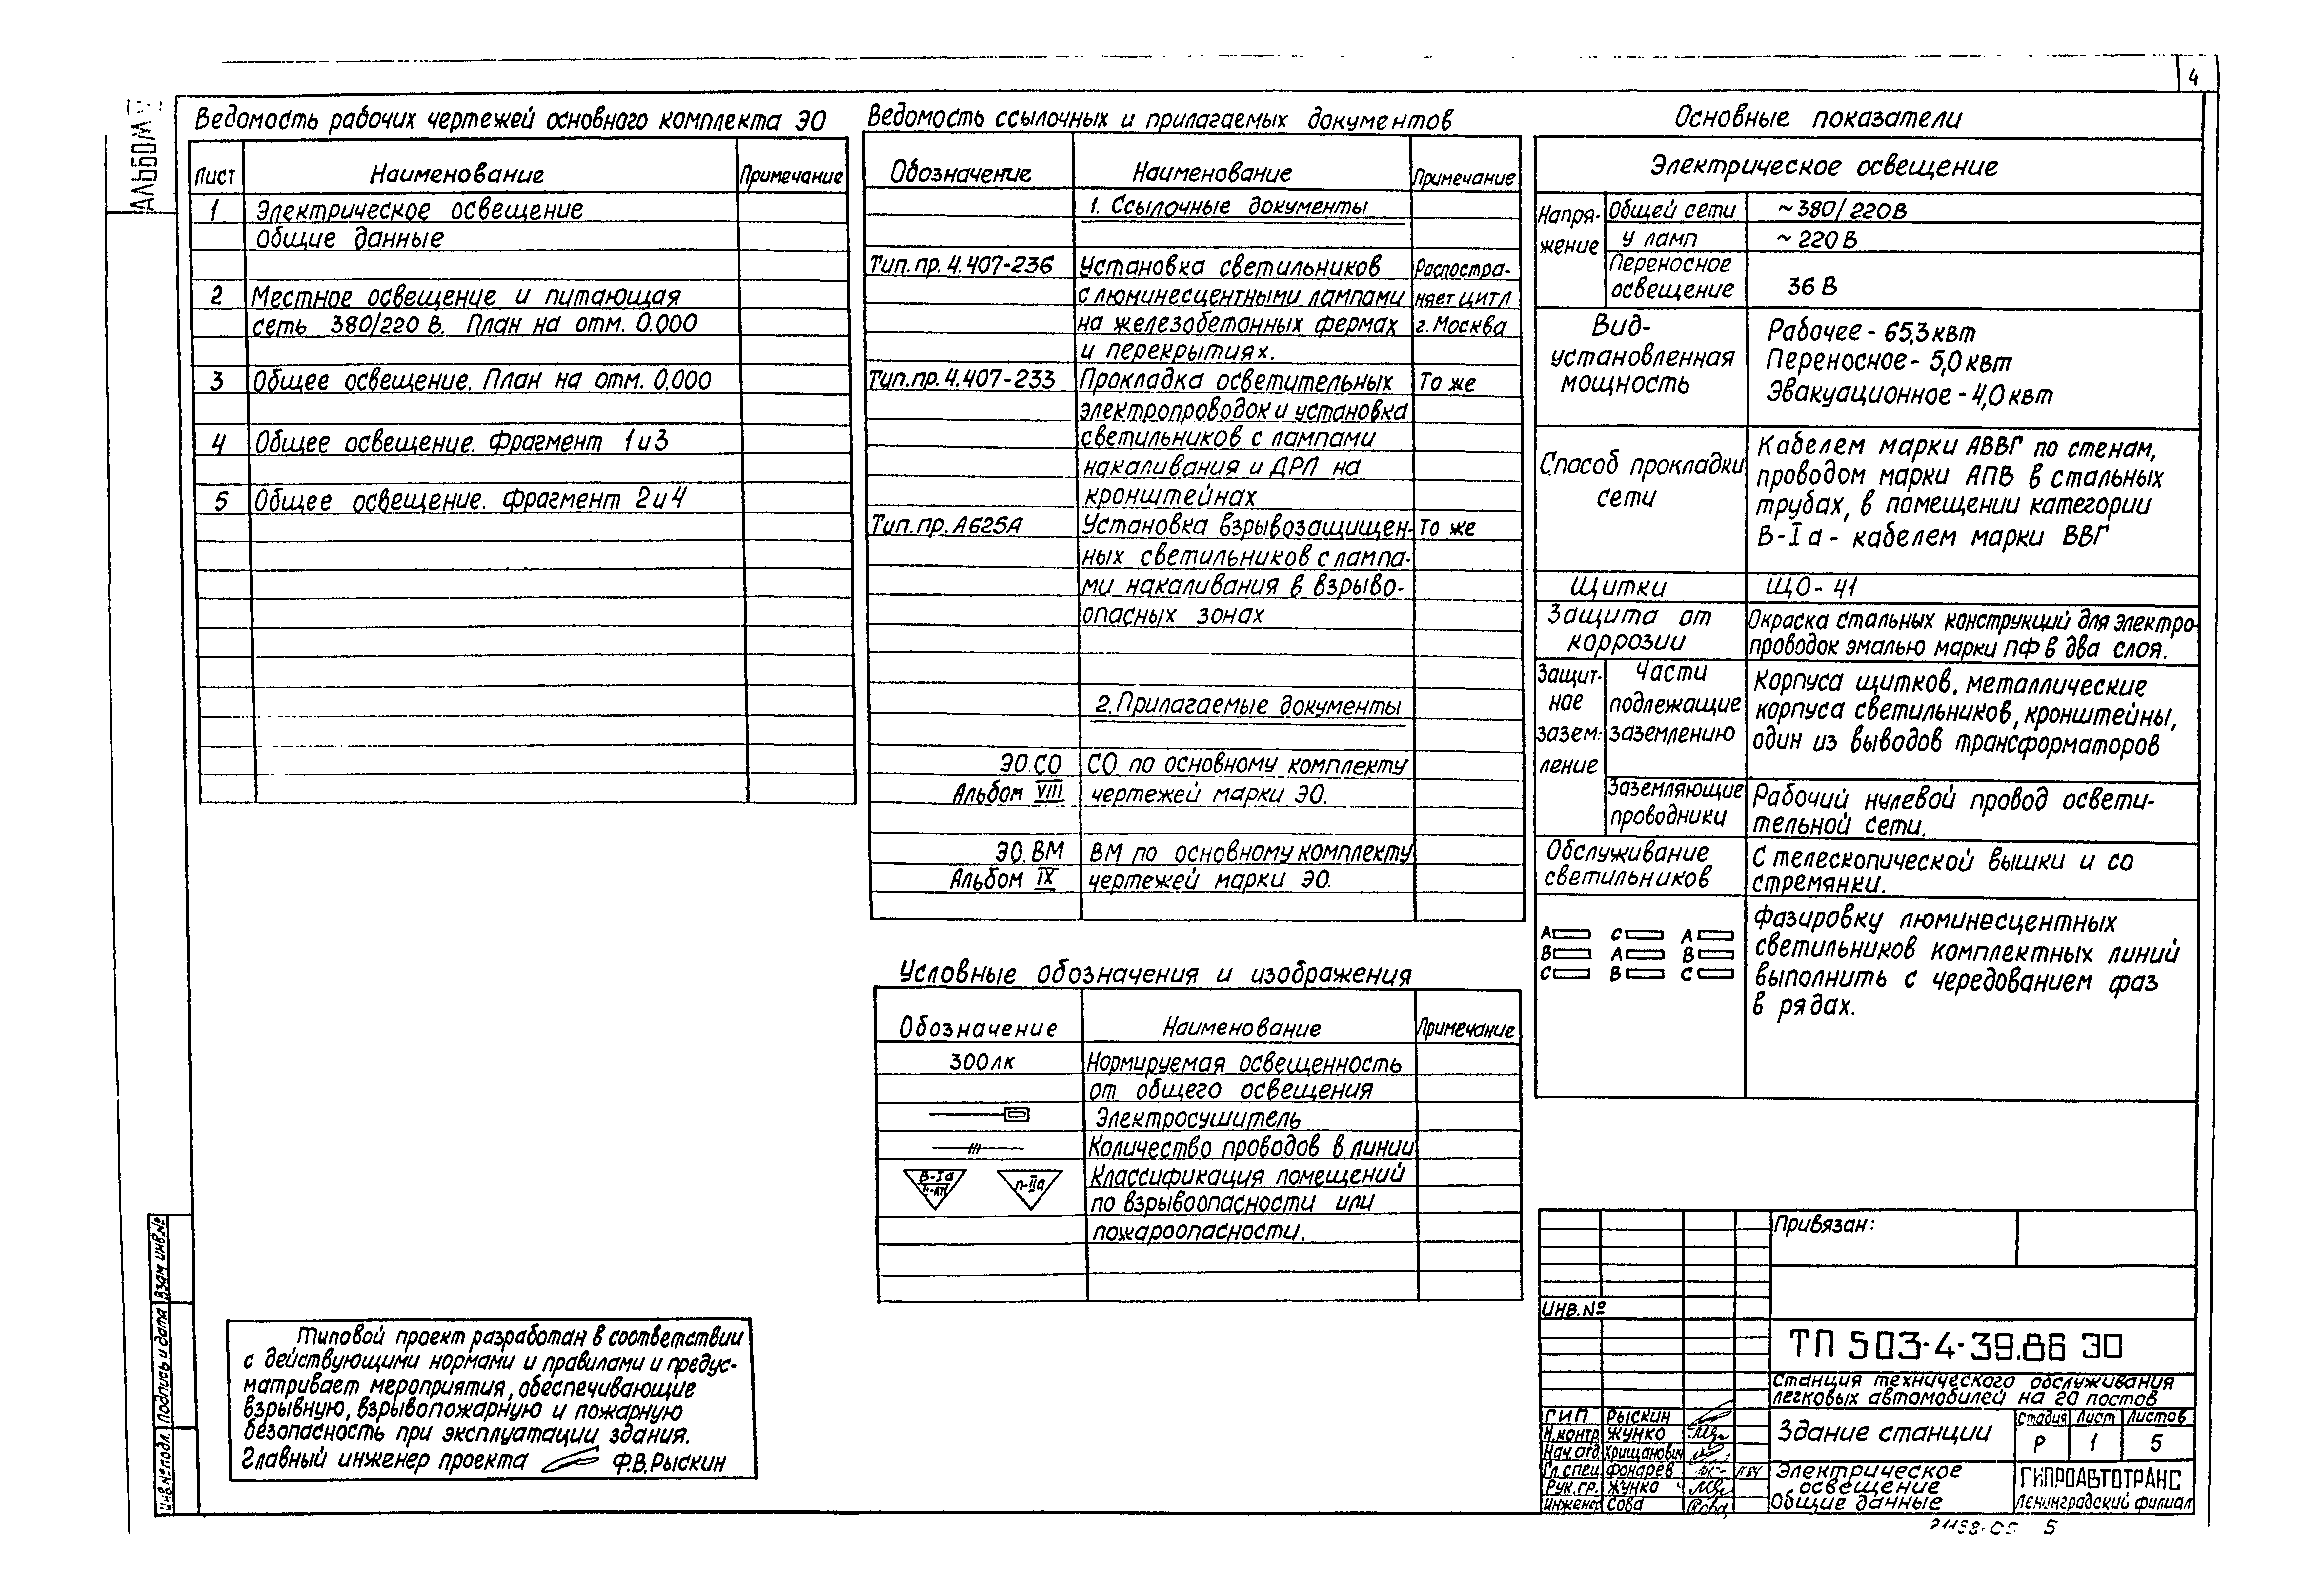 4
Альбом V
Ведомость рабочих чертежей основного комплекта ЭО
Лист Наименование Примечание
1 Электрическое освещение
Общие данные
2 Местное освещение и питающая
сеть 380/220 В. План на отм. 0.000
3 Общее освещение. План на отм. 0.000
4 Общее освещение. Фрагмент 1 и 3
5 Общее освещение. Фрагмент 2 и 4
Ведомость ссылочных и прилагаемых документов
Обозначение Наименование Примечание
1. Ссылочные документы
Тип. пр. 4.407-236 Установка светильников Распостра-
с люминесцентными лампами няет ЦИТП
на железобетонных фермах г. Москва
и перекрытиях.
Тип. пр. 4.407-233 Прокладка осветительных То же
электропроводок и установка
светильников с лампами
накаливания и ДРЛ на
кронштейнах
Тип. пр. А625А Установка взрывозащищен- То же
ных светильников с лампа-
ми накаливания в взрыво-
опасных зонах
2. Прилагаемые документы
ЭО.СО СО по основному комплекту
Альбом VIII чертежей марки ЭО.
ЭО.ВМ ВМ по основному комплекту
Альбом IX чертежей марки ЭО.
Условные обозначения и изображения
Обозначение Наименование Примечание
300лк Нормируемая освещенность
от общего освещения
Электросушитель
Количество проводов в линии
В-Iа П-IIа Классификация помещений
по взрывоопасности или
пожароопасности.
Основные показатели
Электрическое освещение
Напря-
жение
Общей сети ~380/220В
У ламп ~220В
Переносное
освещение 36 В
Вид-
установленная
мощность
Рабочее - 65,3 квт
Переносное - 5,0 квт
Эвакуационное - 4,0 квт
Способ прокладки
сети
Кабелем марки АВВГ по стенам,
проводом марки АПВ в стальных
трубах, в помещении категории
В-Iа - кабелем марки ВВГ
Щитки ЩО-41
Защита от
коррозии
Окраска стальных конструкций для электро-
проводок эмалью марки ПФ в два слоя.
Защит-
ное
зазем-
ление
Части
подлежащие
заземлению
Корпуса щитков, металлические
корпуса светильников, кронштейны,
один из выводов трансформаторов
Заземляющие
проводники
Рабочий нулевой провод освети-
тельной сети.
Обслуживание
светильников
С телескопической вышки и со
стремянки.
А С А
В А В
С В С
Фазировку люминесцентных
светильников комплектных линий
выполнить с чередованием фаз
в рядах.
Типовой проект разработан в соответствии
с действующими нормами и правилами и предус-
матривает мероприятия, обеспечивающие
взрывную, взрывопожарную и пожарную
безопасность при эксплуатации здания.
Главный инженер проекта Ф.В. Рыскин
Взам инв.№
Подпись и дата
Инв.№ подл.
Привязан:
Инв.№
ТП 503-4-39.86 ЭО
Станция технического обслуживания
легковых автомобилей на 20 постов
ГИП Рыскин
Н.контр. Жунко
Нач.отд. Хрищанович
Гл.спец. Фонарев
Рук.гр. Жунко
Инженер Сова
Здание станции
Стадия Лист Листов
Р 1 5
Электрическое
освещение
Общие данные
ГИПРОАВТОТРАНС
Ленинградский филиал
5